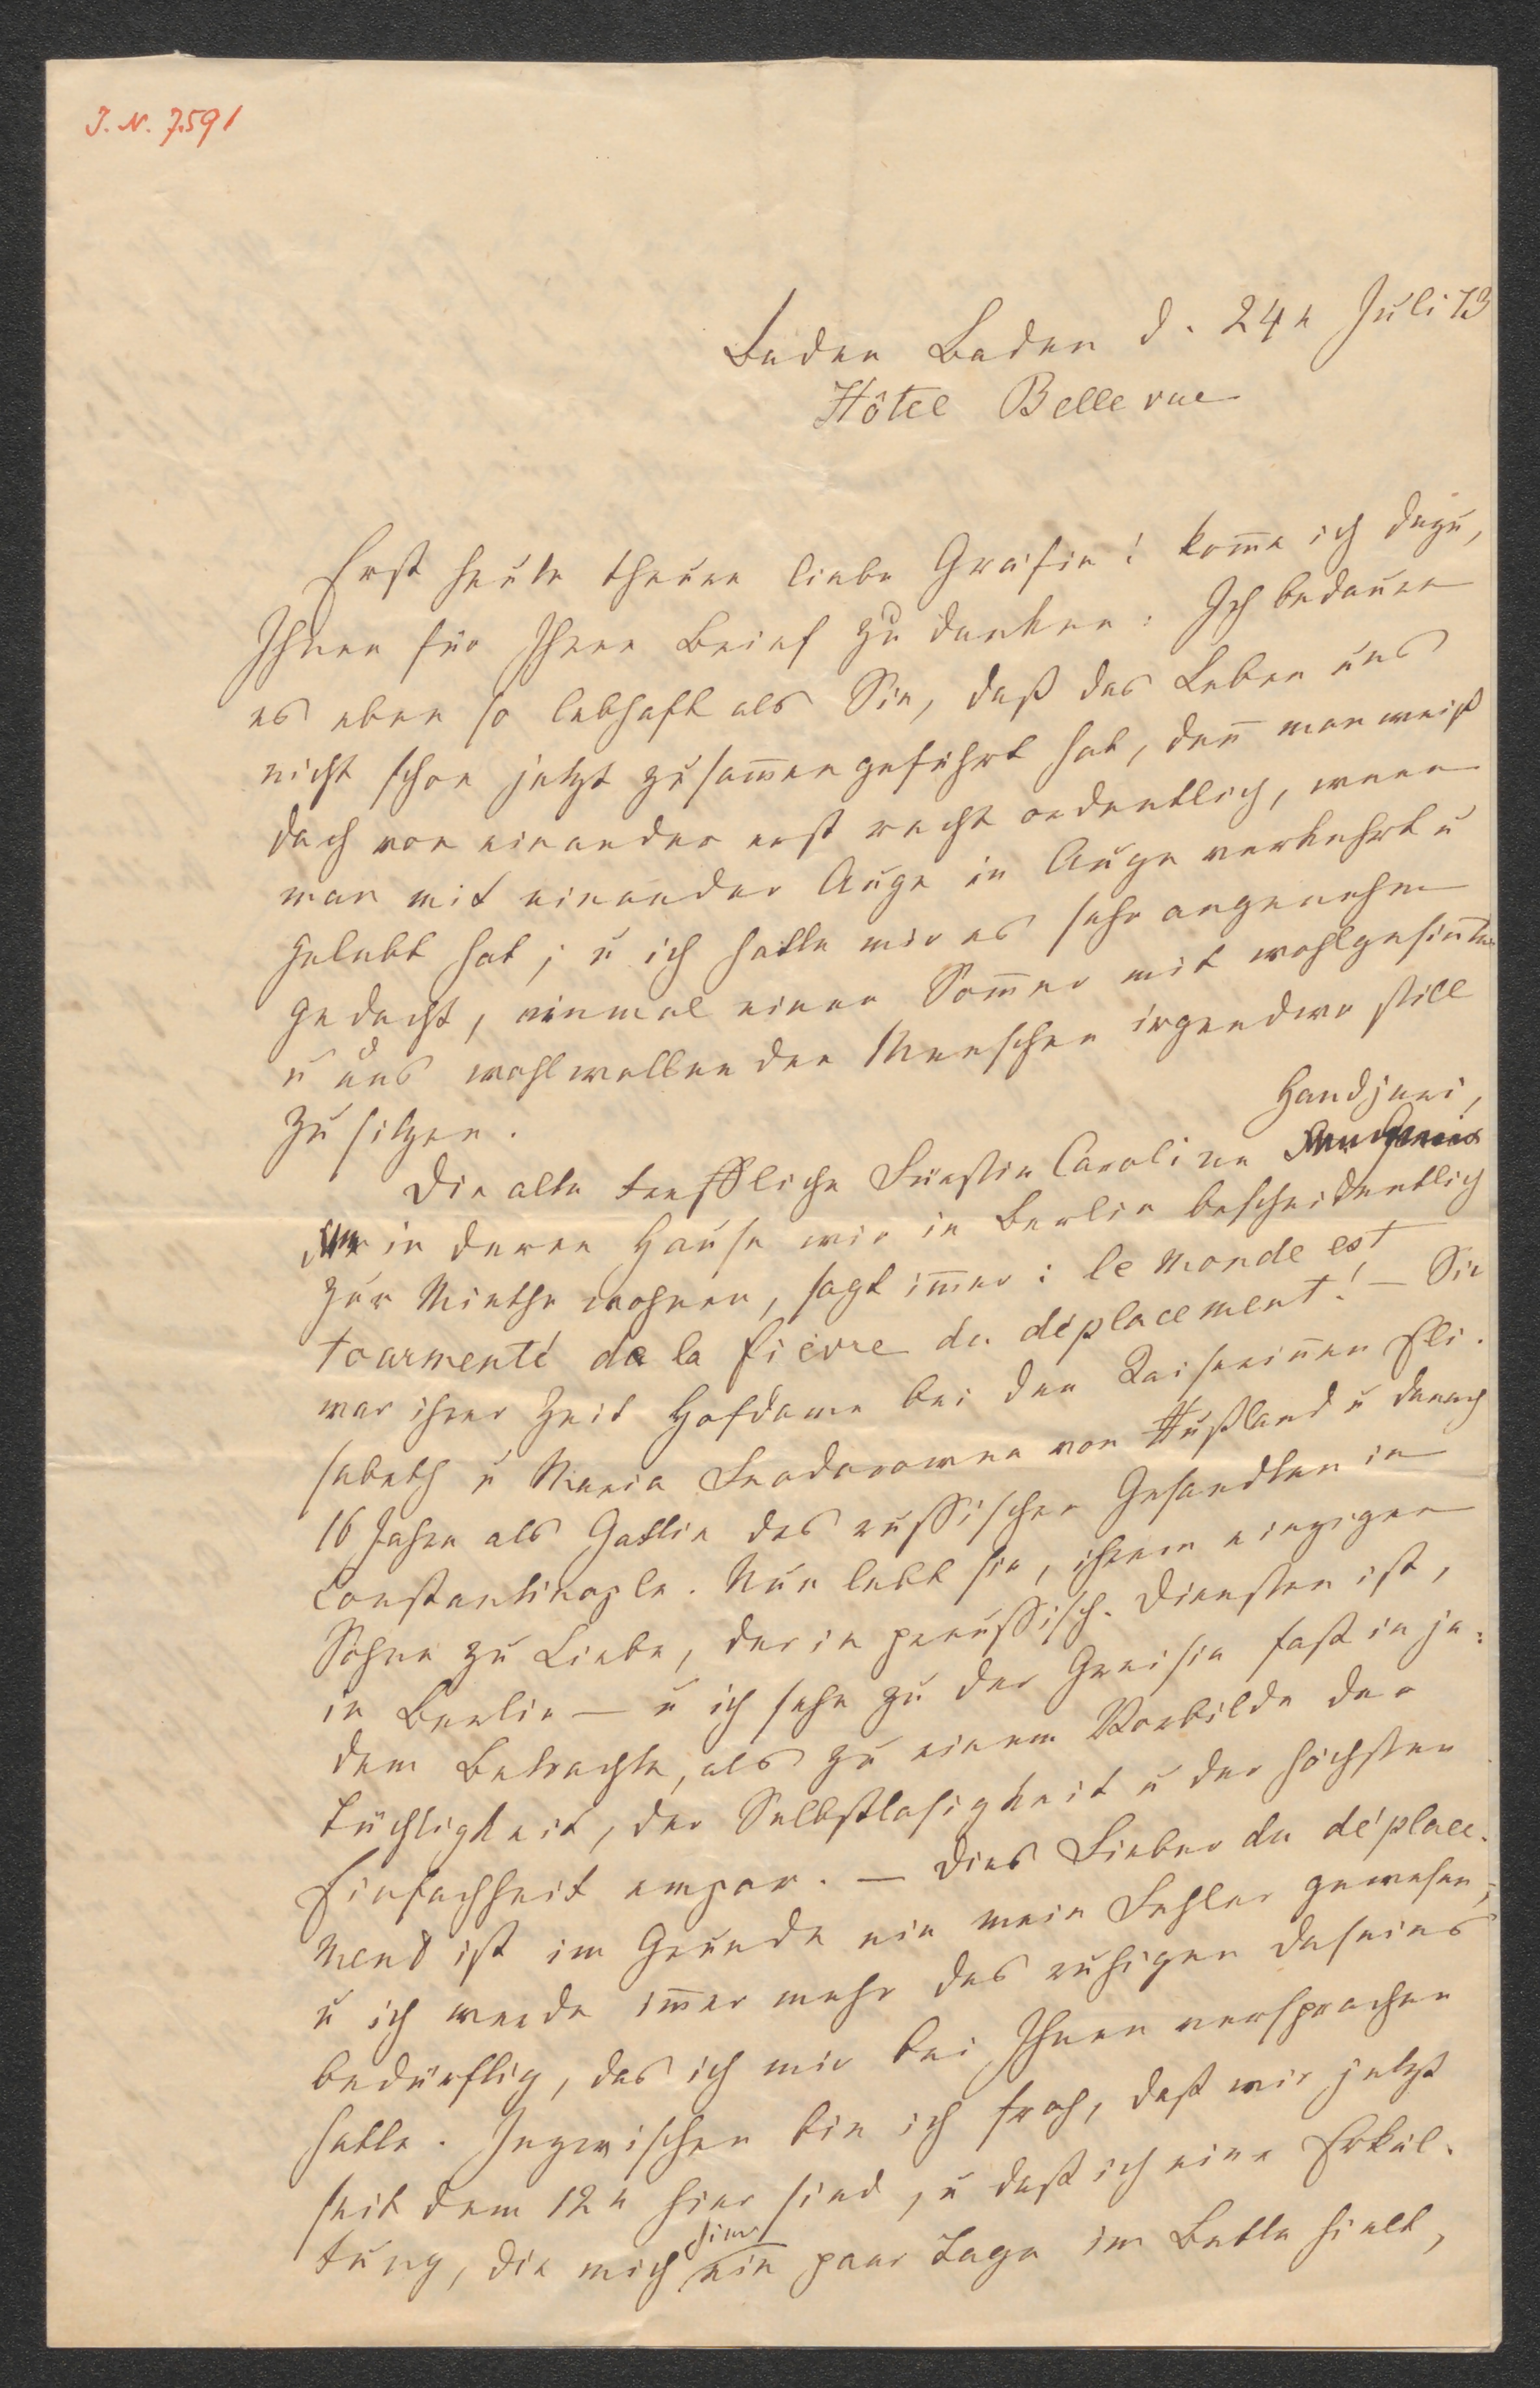 J. N. 7.591
Baden Baden d. 24n Juli 73
Hôtel Bellevue
Erst heute theure liebe Gräfin! kom̄e ich dazu,
Ihnen für Ihren Brief zu danken: Ich bedauere
es eben so lebhaft als Sie, daß das Leben uns
nicht schon jetzt zusam̄en geführt hat, den̄ man weiß
doch von einander erst recht ordentlich, wenn
man mit einander Auge in Auge verkehrt u
gelebt hat; u ich hatte mir es sehr angenehm
gedacht, einmal einen Som̄er mit wohlgesin̄ten
u uns wohlwollenden Menschen irgendwo still
zu sitzen.
Handjeri,
Die alte treffliche Fürstin Caroline
in deren Hause wir in Berlin bescheidentlich
zur Miethe wohnen, sagt im̄er: le monde est
tourmenté de la fièvre du déplacement! — Sie
war ihrer Zeit Hofdame bei den Kaiserin̄en Eli-
sabeth u Maria Feodorowna von Rußland u danach
16 Jahre als Gattin des russischen Gesandten in
Constantinople. Nun lebt sie, ihrem einzigen
Sohne zu Liebe, der in preussisch. Diensten ist,
in Berlin — u ich sehe zu der Greisin fast in je-
dem Betrachte, als zu einem Vorbilde der
Tüchtigkeit, der Selbstlosigkeit u der höchsten
Einfachheit empor. — Dies Fieber du déplace-
ment ist im Grunde nie mein Fehler gewesen,
u ich werde im̄er mehr des ruhigen Daseins
bedürftig, das ich mir bei Ihnen versprochen
hatte. Inzwischen bin ich froh, daß wir jetzt
seit dem 12n hier sind, u daß ich eine Erkäl-
tung, die mich hier ein paar Tage im Bette hielt,